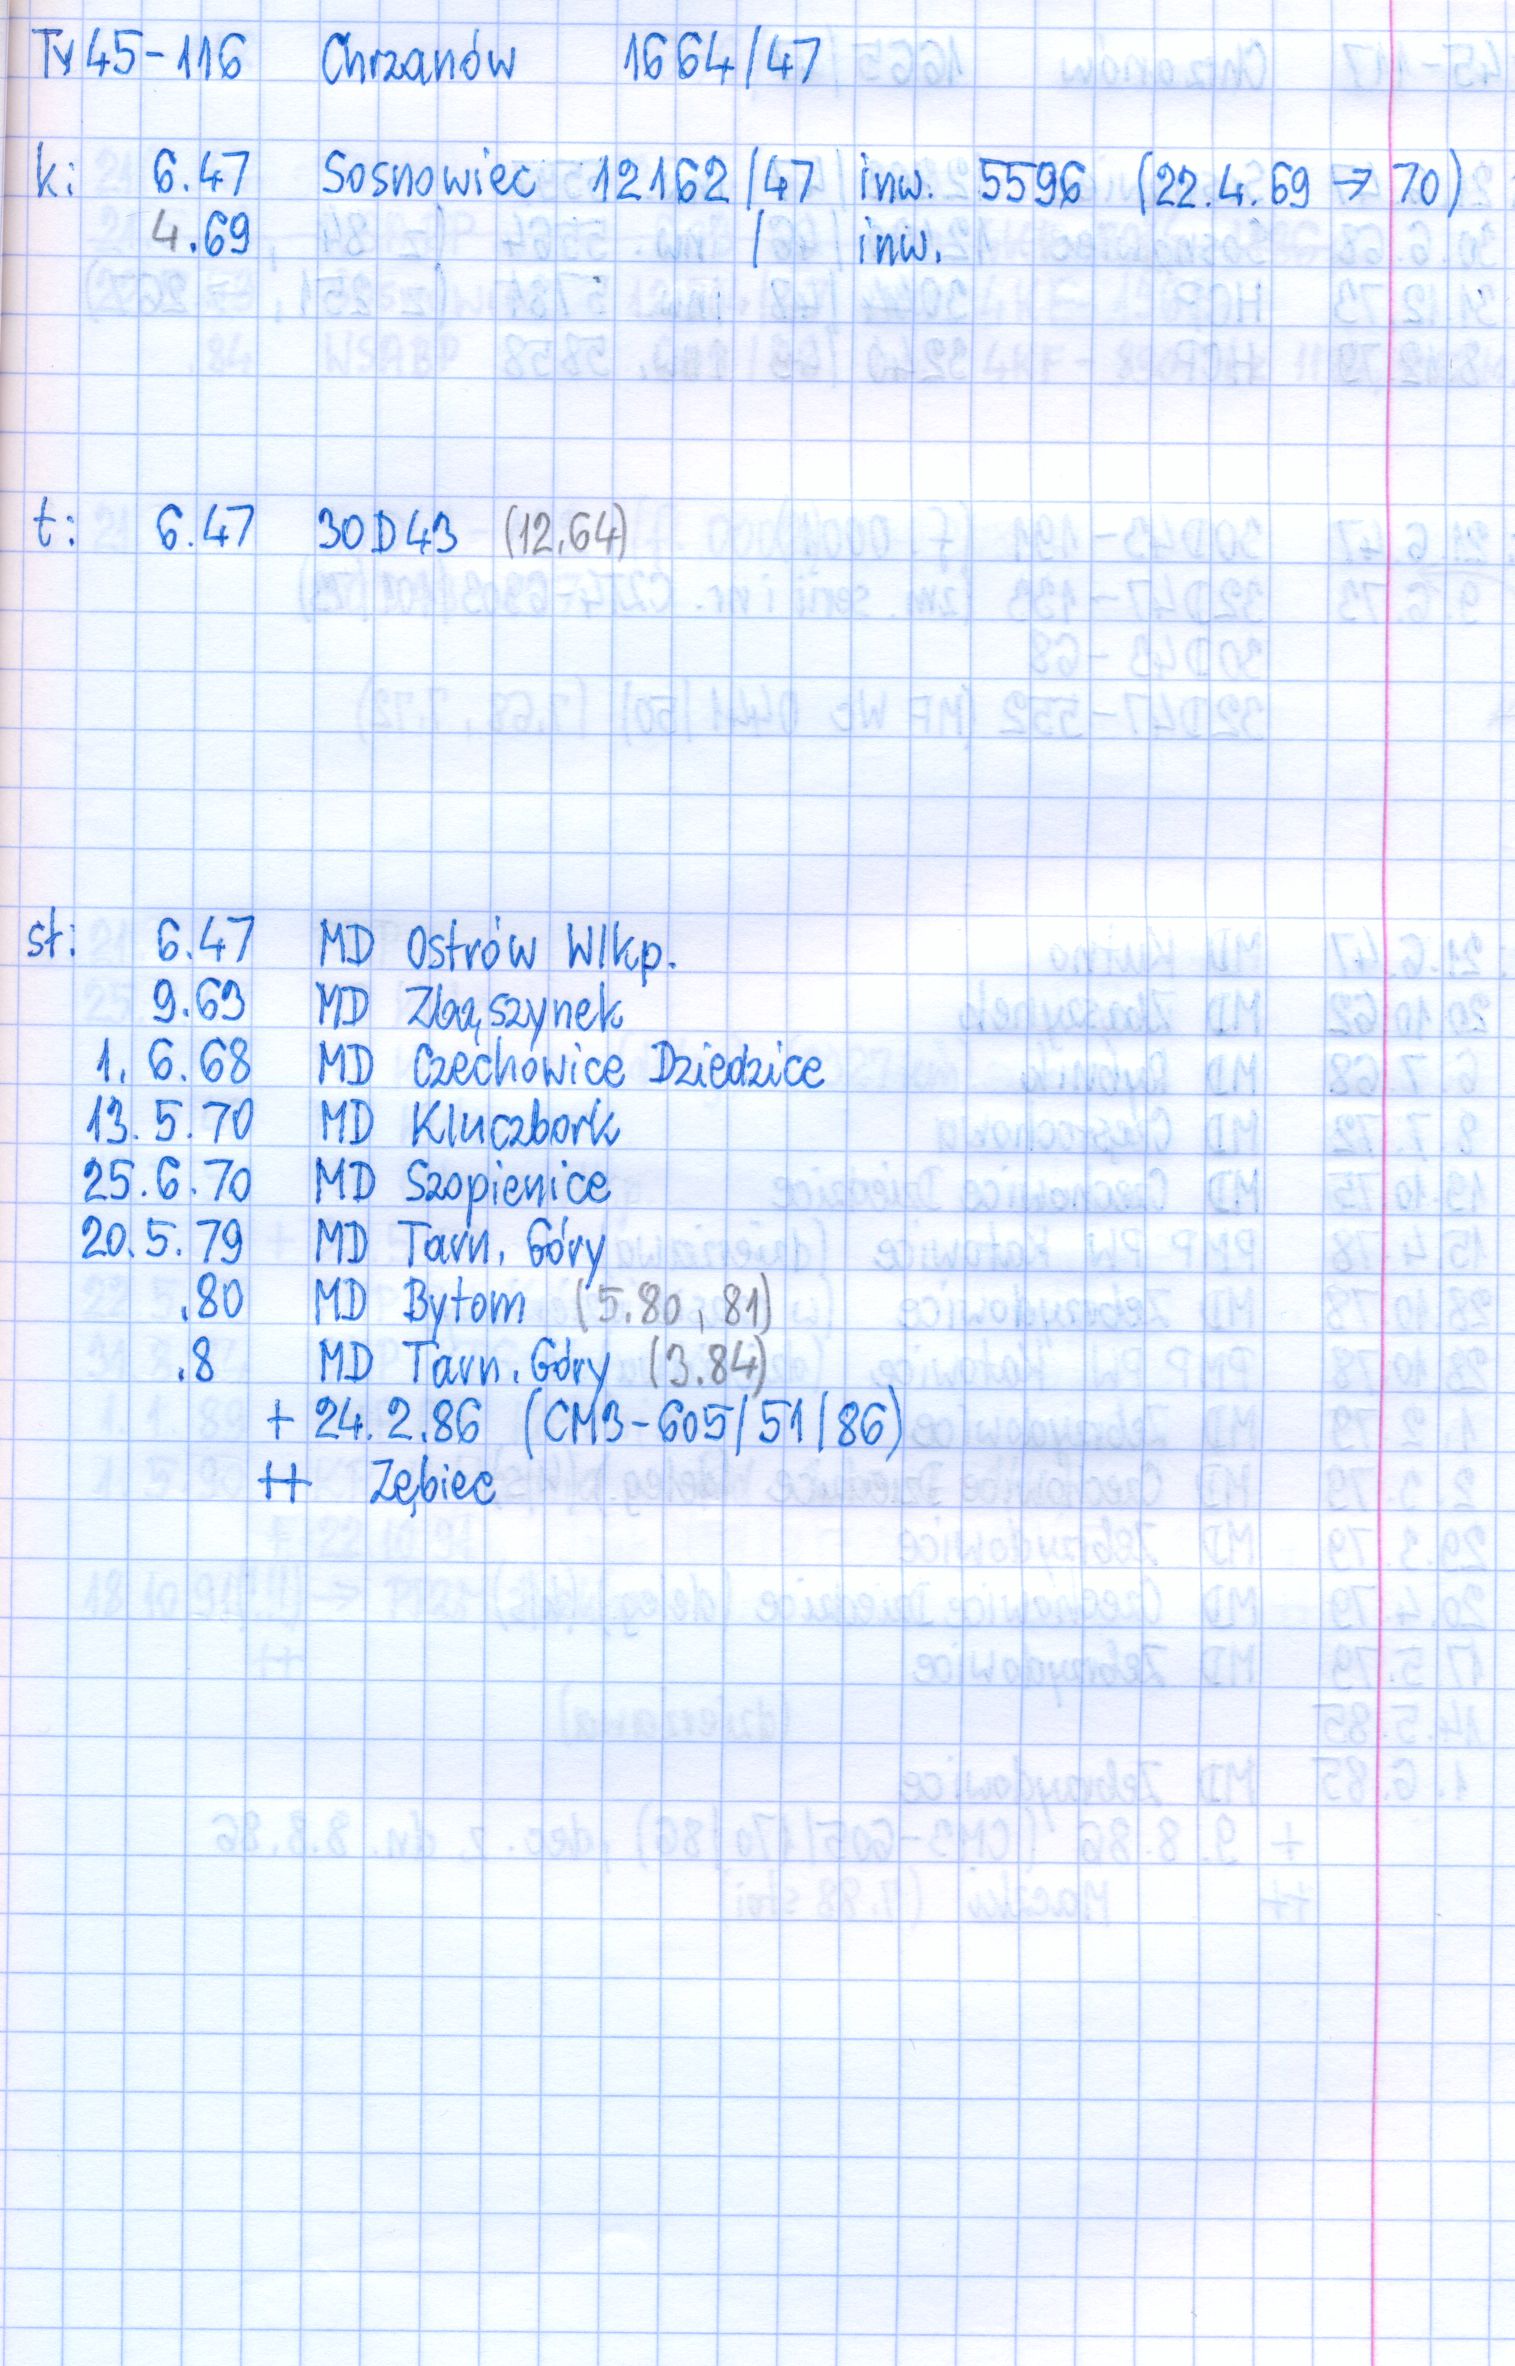 Ty45-116 Chrzanów 1664/47
k: 6.47 Sosnowiec 12162/47 inw. 5596 (22.4.69 → 70)
4.69 / inw.
t: 6.47 30D43 (12.64)
st: 6.47 MD Ostrów Wlkp.
9.63 MD Zbąszynek
1. 6.68 MD Czechowice Dziedzice
13. 5.70 MD Kluczbork
25.6.70 MD Szopienice
20.5.79 MD Tarn. Góry
.80 MD Bytom (5.80, 81)
.8 MD Tarn. Góry (3.84)
+ 24.2.86 (CM3-605/51/86)
++ Zębiec